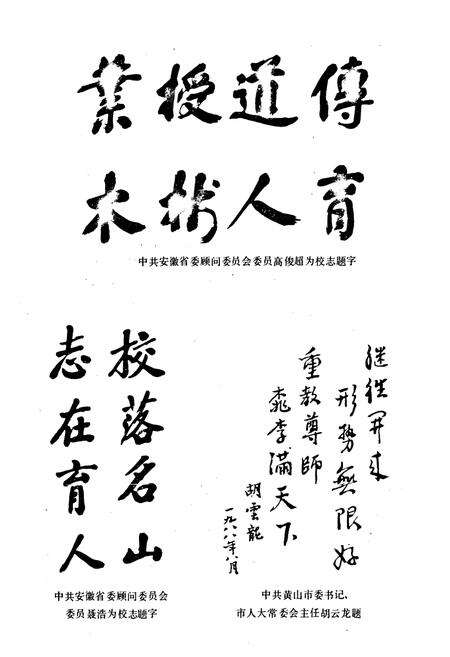 傳道授業
育人樹木
中共安徽省委顾问委员会委员高俊超为校志题字
校落名山
志在育人
中共安徽省委顾问委员会
委员聂浩为校志题字
继往开来
形势無限好
重教尊師
桃李满天下
胡雲龍
一九八八年八月
中共黄山市委书记、
市人大常委会主任胡云龙题